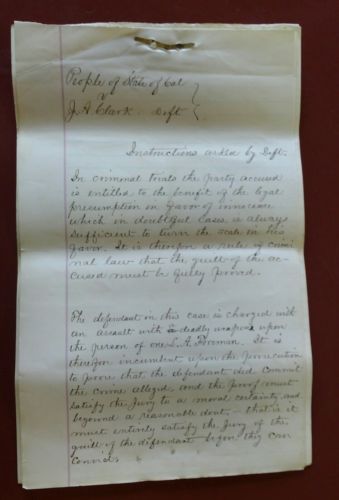 People of State of Cal
v
J. A. Clark Deft
Instructions asked by Deft.
In criminal trials the party accused
is entitled to the benefit of the legal
presumption in favor of innocence
which in doubtful cases is always
sufficient to turn the scale in his
favor. It is therefor a rule of crimi
nal law that the guilt of the ac-
cused must be fully proved.
The defendant in this case is charged with
an assault with a deadly weapon upon
the person of one L. A. Foreman. It is
therefor incumbent upon the prosecution
to prove that the defendant did commit
the crime alleged, and the proof must
satisfy the Jury to a moral certainty and
beyound a reasonable dout - that is it
must entirely satisfy the Jury of the
guilt of the defendant before they can
convict.